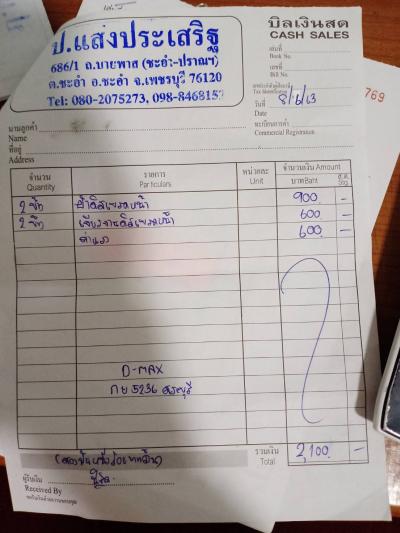 ป.แสงประเสริฐ
686/1 ถ.บายพาส (ชะอำ-ปราณฯ)
ต.ชะอำ อ.ชะอำ จ.เพชรบุรี 76120
Tel: 080-2075273, 098-846815
บิลเงินสด
CASH SALES
เล่มที่
Book No.
เลขที่
Bill No.
769
วันที่ 8/6/63
Date
ทะเบียนการค้า
Commercial Registration
นามลูกค้า
Name
ที่อยู่
Address
จำนวน รายการ หน่วยละ จำนวนเงิน Amount
Quantity Particulars Unit บาท Baht ส.ต. Stg.
2 ผ้าดิสเบรคหน้า 900 -
2 เจียรจานดิสเบรคหน้า 600 -
ค่าแรง 600 -
D-MAX
กย 5236 สระบุรี
(สองพันหนึ่งร้อยบาทถ้วน)
รวมเงิน 2,100 -
Total
ผู้รับเงิน
Received By